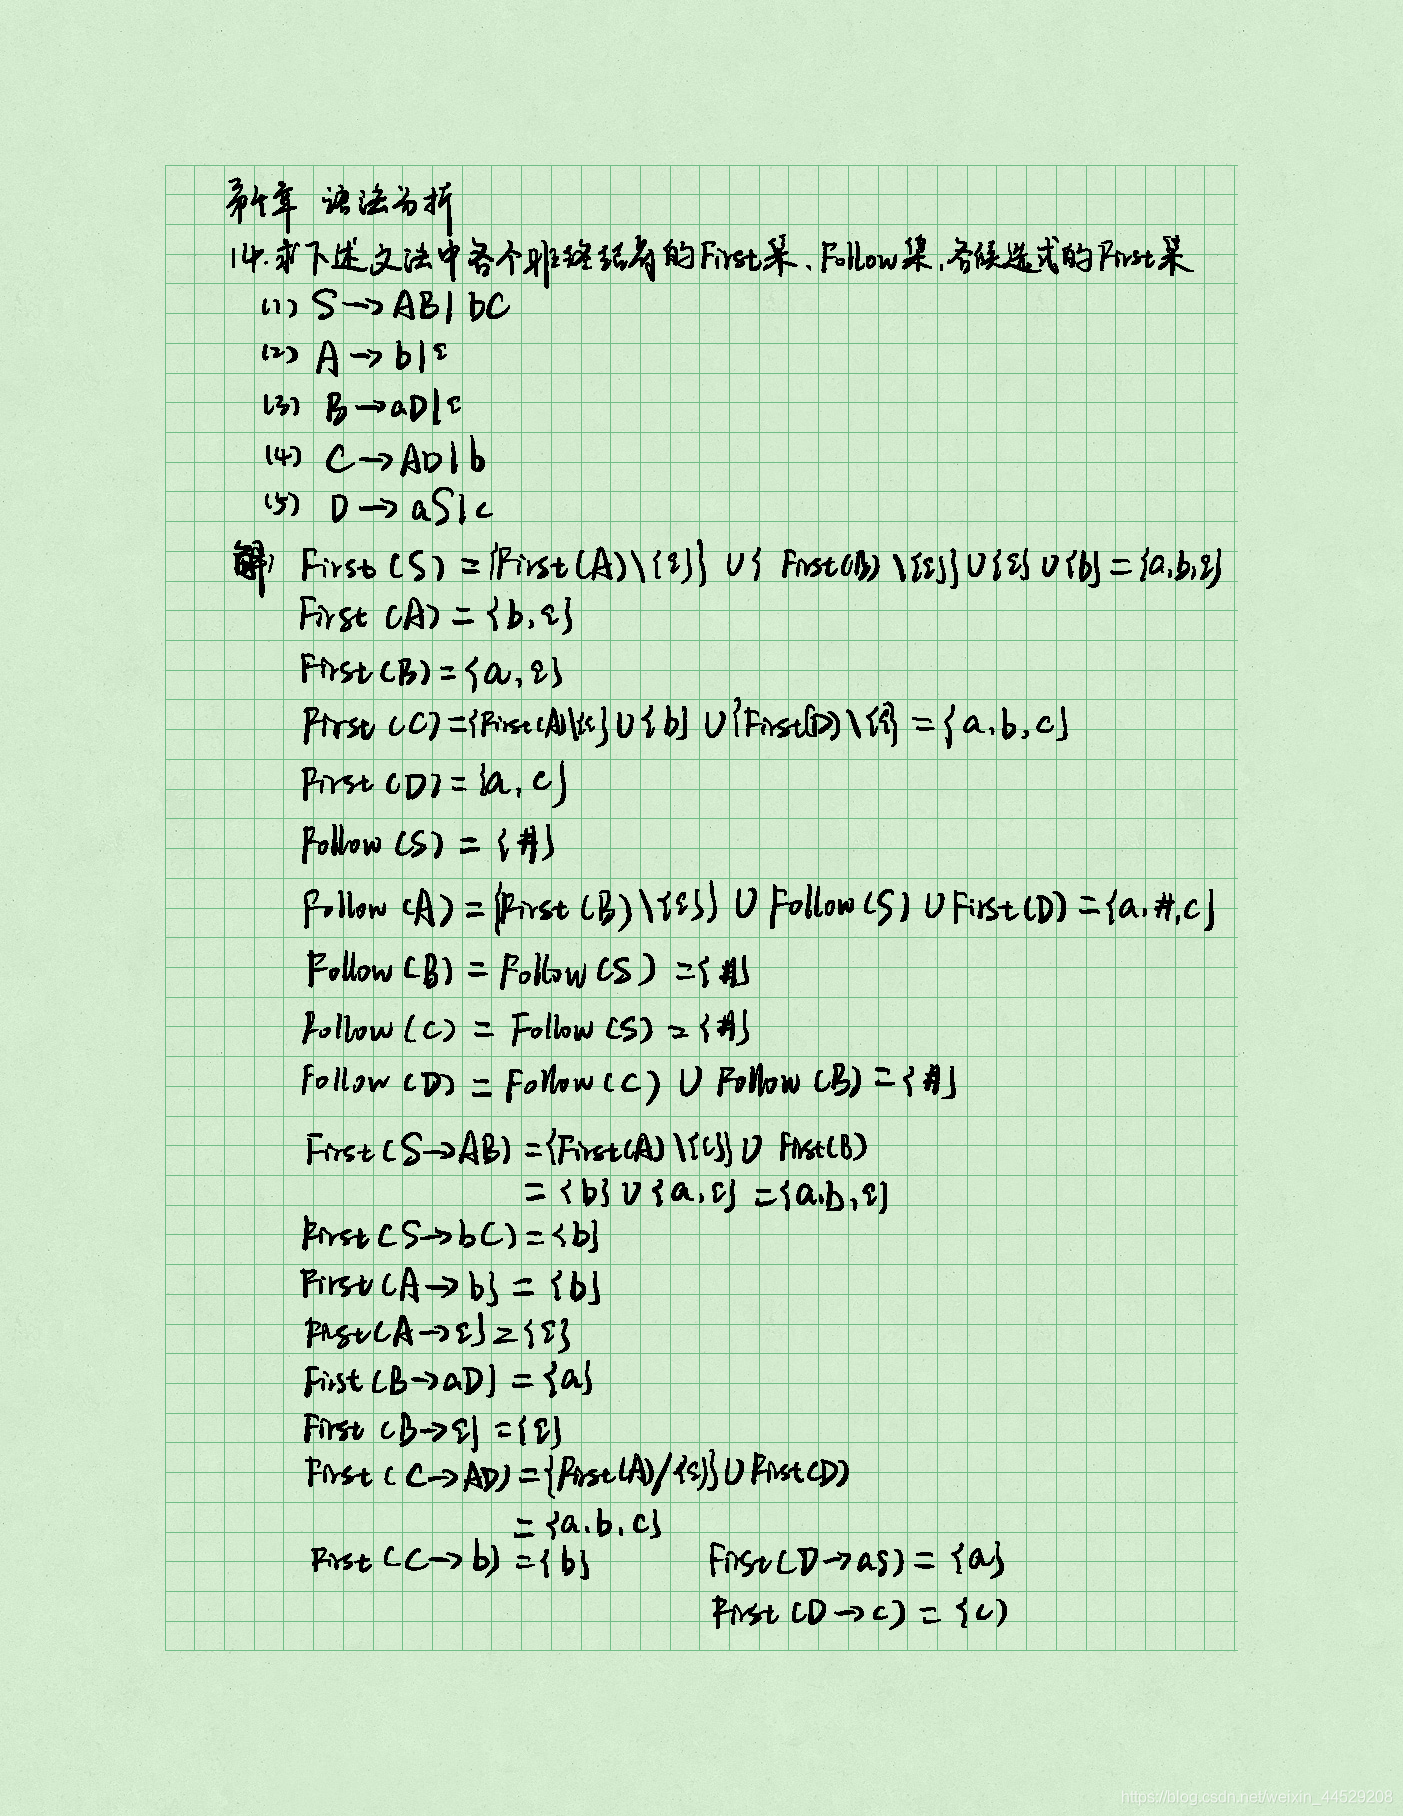 第4章 语法分析
14.求下述文法中各个非终结符的First集、Follow集、各候选式的First集
(1) S→AB|bC
(2) A→b|ε
(3) B→aD|ε
(4) C→AD|b
(5) D→aS|c
解) First(S)={First(A)\{ε}}∪{First(B)\{ε}}∪{ε}∪{b}={a,b,ε}
First(A)={b,ε}
First(B)={a,ε}
First(C)={First(A)\{ε}∪{b}∪{First(D)\{ε}}={a.b,c}
First(D)={a,c}
Follow(S)={#}
Follow(A)={First(B)\{ε}}∪Follow(S)∪First(D)={a.#,c}
Follow(B)=Follow(S)={#}
Follow(C)=Follow(S)={#}
Follow(D)=Follow(C)∪Follow(B)={#}
First(S→AB)={First(A)\{ε}}∪First(B)
={b}∪{a,ε}={a.b,ε}
First(S→bC)={b}
First(A→b}={b}
First(A→ε}={ε}
First(B→aD}={a}
First(B→ε}={ε}
First(C→AD)={First(A)/{ε}}∪First(D)
={a.b,c}
First(C→b)={b} First(D→aS)={a}
First(D→c)={c)
https://blog.csdn.net/weixin_44529208